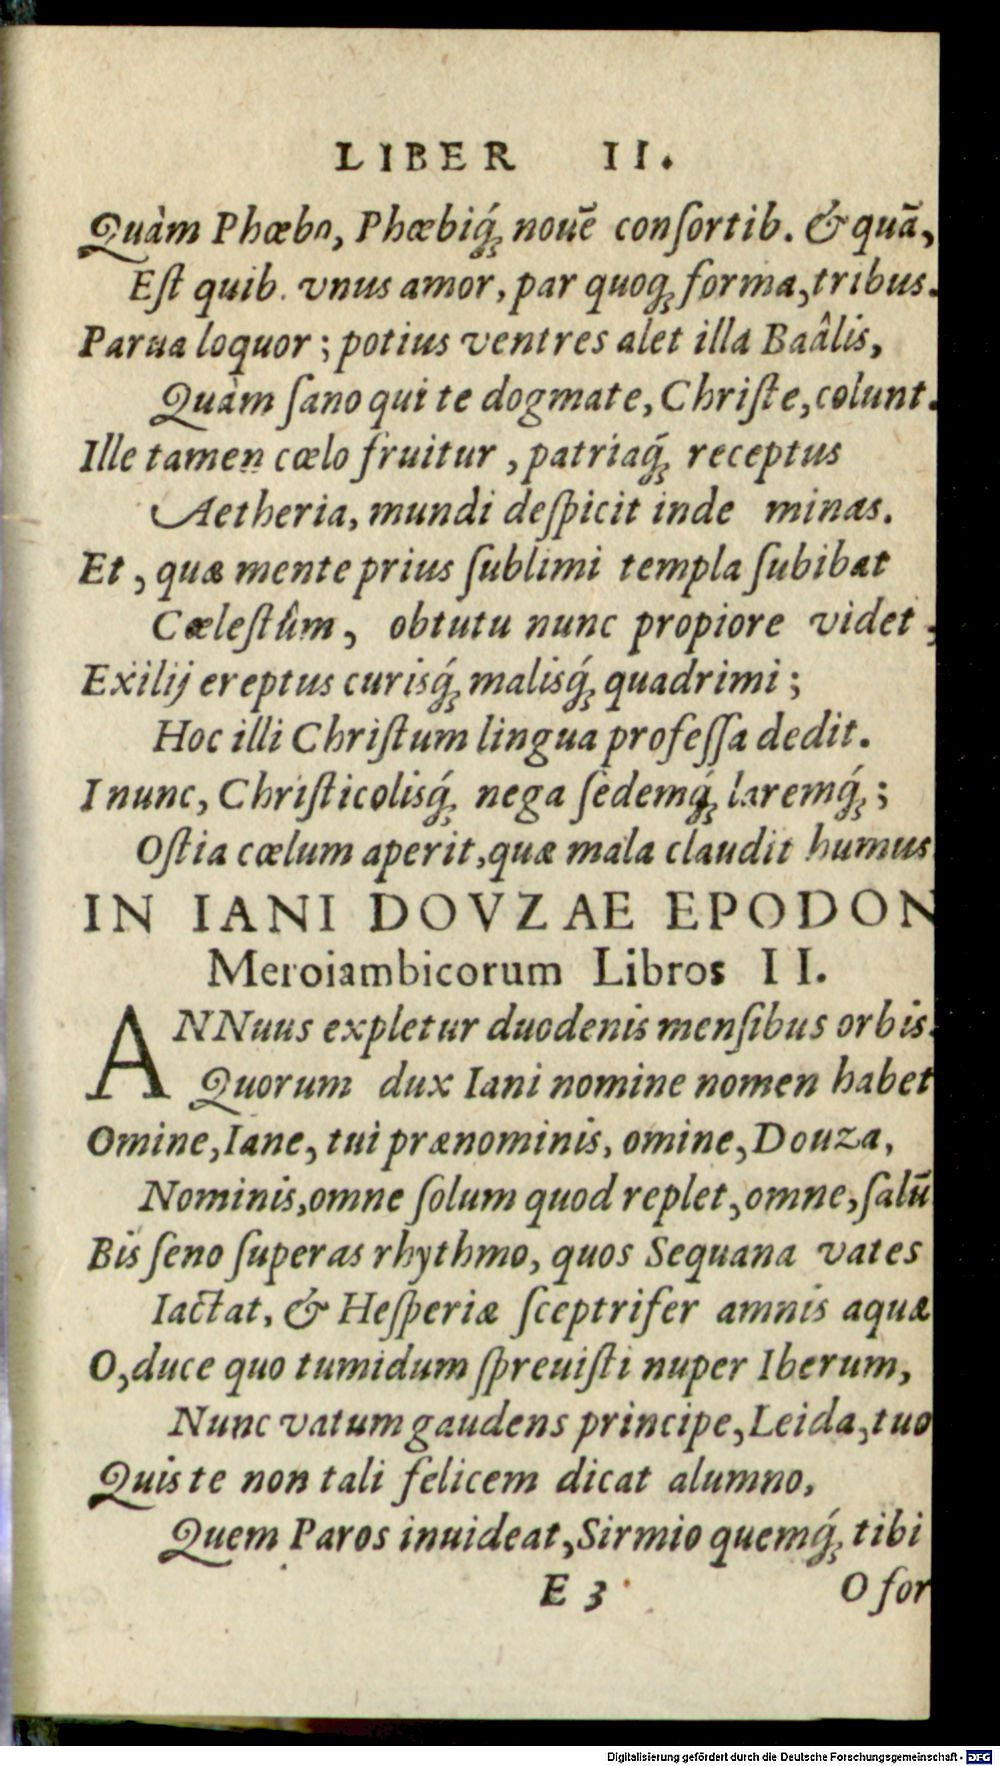 LIBER II.
Quàm Phœbo, Phœbiq́; nouē conſortib. & quā,
Eſt quib. vnus amor, par quoq; forma, tribus.
Parua loquor; potius ventres alet illa Baâlis,
Quàm ſano qui te dogmate, Chriſte, colunt.
Ille tamen cœlo fruitur, patriaq́; receptus
Aetheria, mundi deſpicit inde minas.
Et, quæ mente prius ſublimi templa ſubibat
Cœleſtûm, obtutu nunc propiore videt;
Exilij ereptus curisq́; malisq́; quadrimi;
Hoc illi Chriſtum lingua profeſſa dedit.
I nunc, Chriſticolisq́; nega ſedemq́; laremq́;;
Oſtia cœlum aperit, quæ mala claudit humus
IN IANI DOVZAE EPODON
Meroiambicorum Libros II.
ANNuus expletur duodenis menſibus orbis.
Quorum dux Iani nomine nomen habet
Omine, Iane, tui prænominis, omine, Douza,
Nominis, omne ſolum quod replet, omne, ſalū
Bis ſeno ſuperas rhythmo, quos Sequana vates
Iactat, & Heſperiæ ſceptrifer amnis aquæ
O, duce quo tumidum ſpreuiſti nuper Iberum,
Nunc vatum gaudens principe, Leida, tuo
Quis te non tali felicem dicat alumno,
Quem Paros inuideat, Sirmio quemq́; tibi
E 3 O for
Digitalisierung gefördert durch die Deutsche Forschungsgemeinschaft - DFG